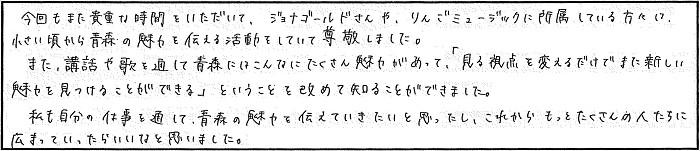 今回もまた貴重な時間をいただいて、ジョナゴールドさんや、りんごミュージックに所属している方々が、
小さい頃から青森の魅力を伝える活動をしていて尊敬しました。
また、講話や歌を通して青森にはこんなにたくさん魅力があって、「見る視点を変えるだけでまた新しい
魅力を見つけることができる」ということを改めて知ることができました。
私も自分の仕事を通して、青森の魅力を伝えていきたいと思ったし、これからもっとたくさんの人たちに
広まっていったらいいなと思いました。